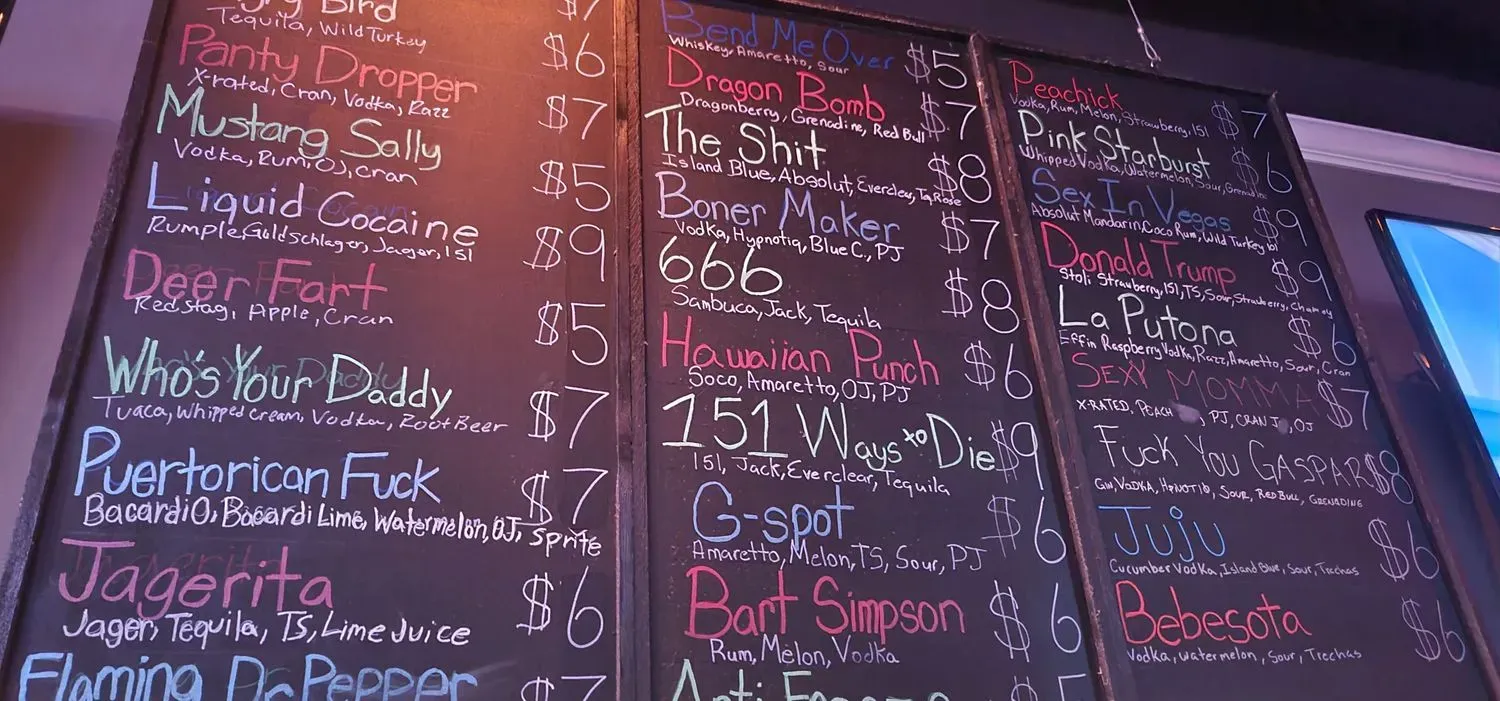 Bird $7
Tequila, Wild Turkey
Panty Dropper $6
X-rated, Cran, Vodka, Razz
Mustang Sally $7
Vodka, Rum, OJ, Cran
Liquid Cocaine $5
Rumple, Goldschlager, Jager, 151
Deer Fart $9
Redstag, Apple, Cran
Who's Your Daddy $5
Tuaca, Whipped Cream, Vodka, Root Beer
Puertorican Fuck $7
Bacardi O, Bacardi Lime, Watermelon, OJ, Sprite
$7
Jagerita $6
Jager, Tequila, TS, Lime Juice
Flaming Dr Pepper $7
Bend Me Over $5
Whiskey, Amaretto, Sour
Dragon Bomb $7
Dragonberry, Grenadine, Red Bull
The Shit $8
Island Blue, Absolut, Everclear, Tq Rose
Boner Maker $7
Vodka, Hypnotiq, Blue C., PJ
666 $8
Sambuca, Jack, Tequila
Hawaiian Punch $6
Soco, Amaretto, OJ, PJ
151 Ways to Die $9
151, Jack, Everclear, Tequila
G-spot $6
Amaretto, Melon, TS, Sour, PJ
Bart Simpson $6
Rum, Melon, Vodka
Anti
Peachick $7
Vodka, Rum, Melon, Strawberry, 151
Pink Starburst $6
Whipped Vodka, Watermelon, Sour, Grenadine
Sex In Vegas $9
Absolut Mandarin, Coco Rum, Wild Turkey 101
Donald Trump $9
Stoli Strawberry, 151, TS, Sour, Strawberry,
La Putona $6
Effin Raspberry Vodka, Razz, Amaretto, Sour, Cran
Sexy Momma $7
X-RATED, PEACH, PJ, CRAN, OJ
Fuck You GASPAR $8
GIN, VODKA, HPNOTIQ, SOUR, RED BULL, GRENADINE
Juju $6
Cucumber Vodka, Island Blue, Sour, Trechas
Bebesota $6
Vodka, Watermelon, Sour, Trechas